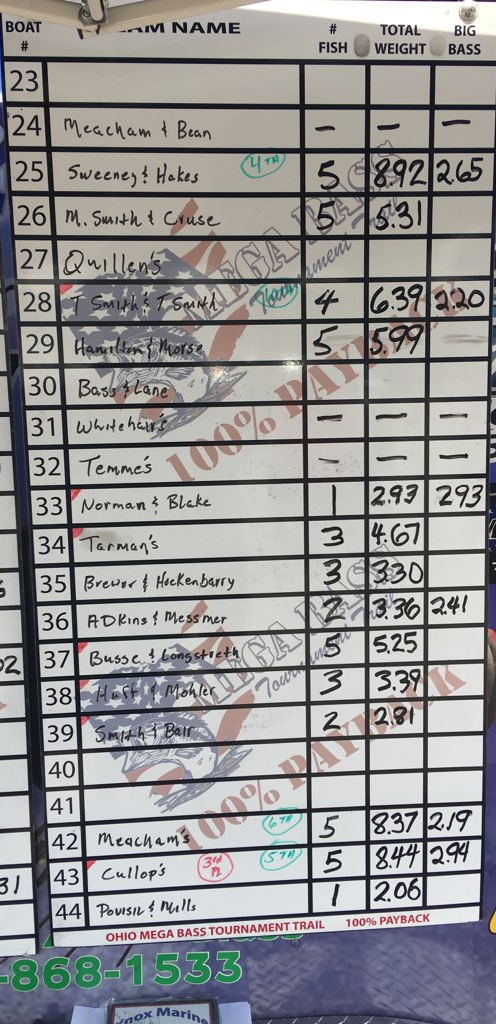 BOAT # TEAM NAME # FISH TOTAL WEIGHT BIG BASS
23
24 Meacham & Bean — — —
25 Sweeney & Hakes 4TH 5 8.92 2.65
26 M. Smith & Cruse 5 5.31
27 Quillen's
28 T Smith & T Smith 4 6.39 2.20
29 Hamilton & Morse 5 5.99
30 Bass & Lane
31 Whitehair's — — —
32 Temme's — — —
33 Norman & Blake 1 2.93 293
34 Tarman's 3 4.67
35 Brewer & Hockenbarry 3 3.30
36 ADkins & Messmer 2 3.36 2.41
37 Busse & Longstreth 5 5.25
38 Huff & Mohler 3 3.39
39 Smith & Bair 2 2.81
40
41
42 Meacham's 6TH 5 8.37 2.19
43 Cullop's 3rd Pl 5TH 5 8.44 2.94
44 Povisil & Mills 1 2.06
MEGA BASS
Tournament Trail
100% PAYBACK
MEGA BASS
Tournament Trail
100% PAYBACK
OHIO MEGA BASS TOURNAMENT TRAIL 100% PAYBACK
-868-1533
Knox Marine